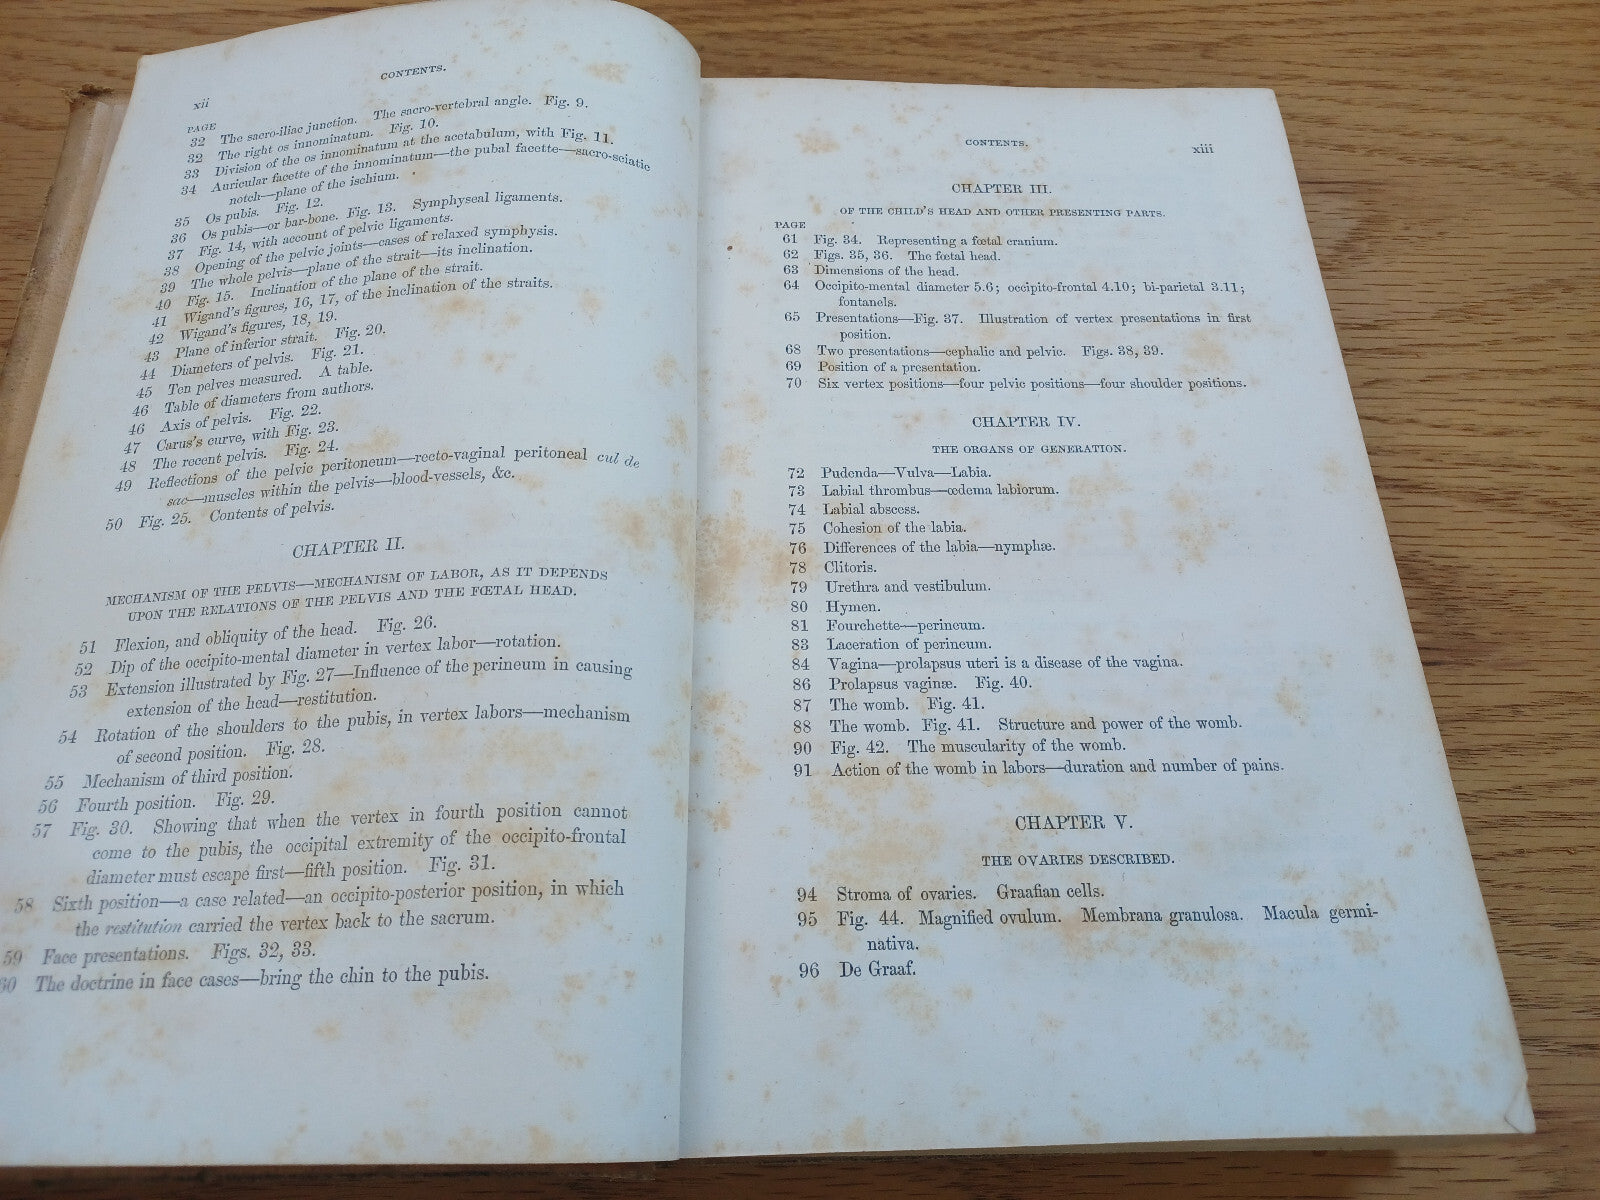 CONTENTS.
xii
PAGE
32 The sacro-iliac junction. The sacro-vertebral angle. Fig. 9.
32 The right os innominatum. Fig. 10.
33 Division of the os innominatum at the acetabulum, with Fig. 11.
34 Auricular facette of the innominatum—the pubal facette—sacro-sciatic
notch—plane of the ischium.
35 Os pubis. Fig. 12.
36 Os pubis—or bar-bone. Fig. 13. Symphyseal ligaments.
37 Fig. 14, with account of pelvic ligaments.
38 Opening of the pelvic joints—cases of relaxed symphysis.
39 The whole pelvis—plane of the strait—its inclination.
40 Fig. 15. Inclination of the plane of the strait.
41 Wigand's figures, 16, 17, of the inclination of the straits.
42 Wigand's figures, 18, 19.
43 Plane of inferior strait. Fig. 20.
44 Diameters of pelvis. Fig. 21.
45 Ten pelves measured. A table.
46 Table of diameters from authors.
46 Axis of pelvis. Fig. 22.
47 Carus's curve, with Fig. 23.
48 The recent pelvis. Fig. 24.
49 Reflections of the pelvic peritoneum—recto-vaginal peritoneal cul de
sac—muscles within the pelvis—blood-vessels, &c.
50 Fig. 25. Contents of pelvis.
CHAPTER II.
MECHANISM OF THE PELVIS—MECHANISM OF LABOR, AS IT DEPENDS
UPON THE RELATIONS OF THE PELVIS AND THE FŒTAL HEAD.
51 Flexion, and obliquity of the head. Fig. 26.
52 Dip of the occipito-mental diameter in vertex labor—rotation.
53 Extension illustrated by Fig. 27—Influence of the perineum in causing
extension of the head—restitution.
54 Rotation of the shoulders to the pubis, in vertex labors—mechanism
of second position. Fig. 28.
55 Mechanism of third position.
56 Fourth position. Fig. 29.
57 Fig. 30. Showing that when the vertex in fourth position cannot
come to the pubis, the occipital extremity of the occipito-frontal
diameter must escape first—fifth position. Fig. 31.
58 Sixth position—a case related—an occipito-posterior position, in which
the restitution carried the vertex back to the sacrum.
59 Face presentations. Figs. 32, 33.
60 The doctrine in face cases—bring the chin to the pubis.
CONTENTS.
xiii
CHAPTER III.
OF THE CHILD'S HEAD AND OTHER PRESENTING PARTS.
PAGE
61 Fig. 34. Representing a fœtal cranium.
62 Figs. 35, 36. The fœtal head.
63 Dimensions of the head.
64 Occipito-mental diameter 5.6; occipito-frontal 4.10; bi-parietal 3.11;
fontanels.
65 Presentations—Fig. 37. Illustration of vertex presentations in first
position.
68 Two presentations—cephalic and pelvic. Figs. 38, 39.
69 Position of a presentation.
70 Six vertex positions—four pelvic positions—four shoulder positions.
CHAPTER IV.
THE ORGANS OF GENERATION.
72 Pudenda—Vulva—Labia.
73 Labial thrombus—œdema labiorum.
74 Labial abscess.
75 Cohesion of the labia.
76 Differences of the labia—nymphæ.
78 Clitoris.
79 Urethra and vestibulum.
80 Hymen.
81 Fourchette—perineum.
83 Laceration of perineum.
84 Vagina—prolapsus uteri is a disease of the vagina.
86 Prolapsus vaginæ. Fig. 40.
87 The womb. Fig. 41.
88 The womb. Fig. 41. Structure and power of the womb.
90 Fig. 42. The muscularity of the womb.
91 Action of the womb in labors—duration and number of pains.
CHAPTER V.
THE OVARIES DESCRIBED.
94 Stroma of ovaries. Graafian cells.
95 Fig. 44. Magnified ovulum. Membrana granulosa. Macula germi-
nativa.
96 De Graaf.